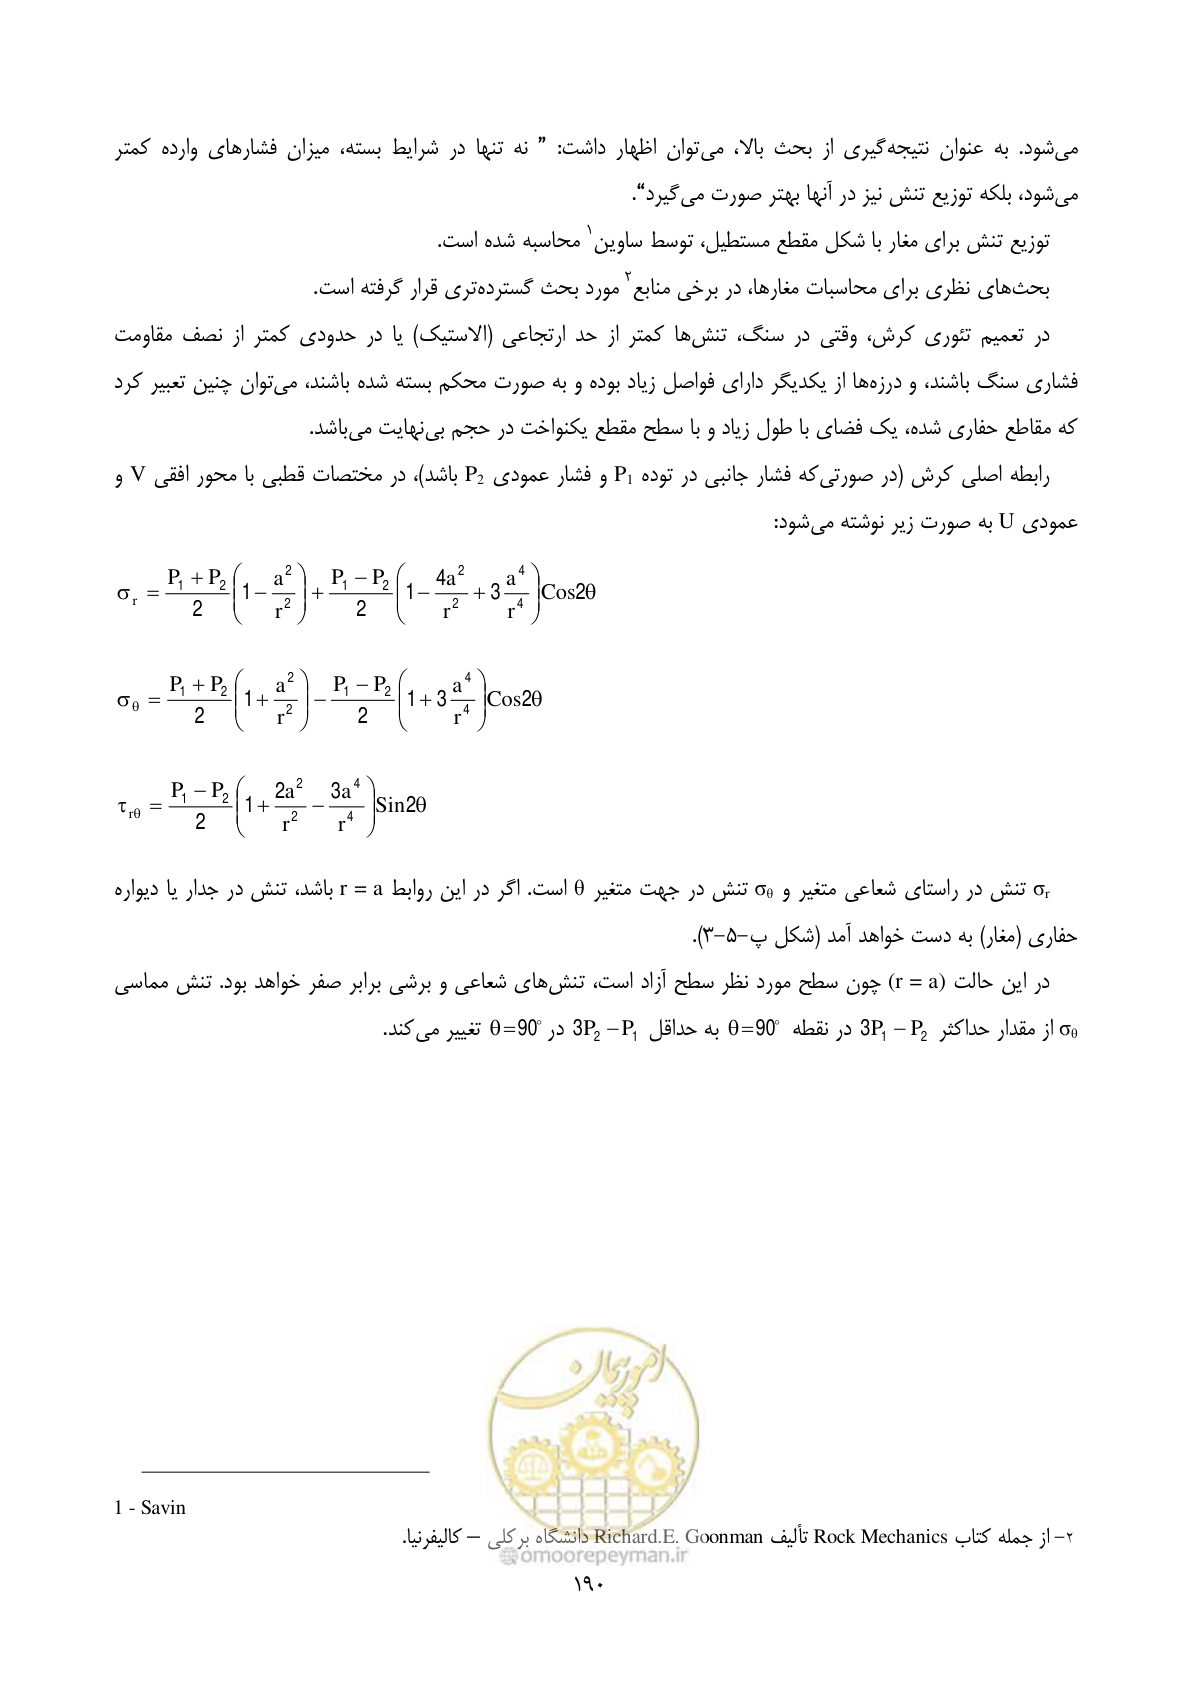 می‌شود. به عنوان نتیجه‌گیری از بحث بالا، می‌توان اظهار داشت: ” نه تنها در شرایط بسته، میزان فشارهای وارده کمتر
می‌شود، بلکه توزیع تنش نیز در آنها بهتر صورت می‌گیرد“.
توزیع تنش برای مغار با شکل مقطع مستطیل، توسط ساوین۱ محاسبه شده است.
بحث‌های نظری برای محاسبات مغارها، در برخی منابع۲ مورد بحث گسترده‌تری قرار گرفته است.
در تعمیم تئوری کرش، وقتی در سنگ، تنش‌ها کمتر از حد ارتجاعی (الاستیک) یا در حدودی کمتر از نصف مقاومت
فشاری سنگ باشند، و درزه‌ها از یکدیگر دارای فواصل زیاد بوده و به صورت محکم بسته شده باشند، می‌توان چنین تعبیر کرد
که مقاطع حفاری شده، یک فضای با طول زیاد و با سطح مقطع یکنواخت در حجم بی‌نهایت می‌باشد.
رابطه اصلی کرش (در صورتی‌که فشار جانبی در توده P₁ و فشار عمودی P₂ باشد)، در مختصات قطبی با محور افقی V و
عمودی U به صورت زیر نوشته می‌شود:
σ_r = (P₁ + P₂)/2 (1 − a²/r²) + (P₁ − P₂)/2 (1 − 4a²/r² + 3 a⁴/r⁴) Cos2θ
σ_θ = (P₁ + P₂)/2 (1 + a²/r²) − (P₁ − P₂)/2 (1 + 3 a⁴/r⁴) Cos2θ
τ_rθ = (P₁ − P₂)/2 (1 + 2a²/r² − 3a⁴/r⁴) Sin2θ
σ_r تنش در راستای شعاعی متغیر و σ_θ تنش در جهت متغیر θ است. اگر در این روابط r = a باشد، تنش در جدار یا دیواره
حفاری (مغار) به دست خواهد آمد (شکل پ-۵-۳).
در این حالت (r = a) چون سطح مورد نظر سطح آزاد است، تنش‌های شعاعی و برشی برابر صفر خواهد بود. تنش مماسی
σ_θ از مقدار حداکثر 3P₁ − P₂ در نقطه θ=90° به حداقل 3P₂ − P₁ در θ=90° تغییر می‌کند.
امور پیمان
1 - Savin
۲- از جمله کتاب Rock Mechanics تألیف Richard.E. Goonman دانشگاه برکلی – کالیفرنیا.
@omoorepeyman.ir
۱۹۰